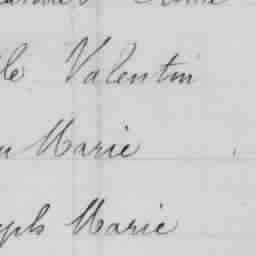 le Valentin
u Marie
eph Marie